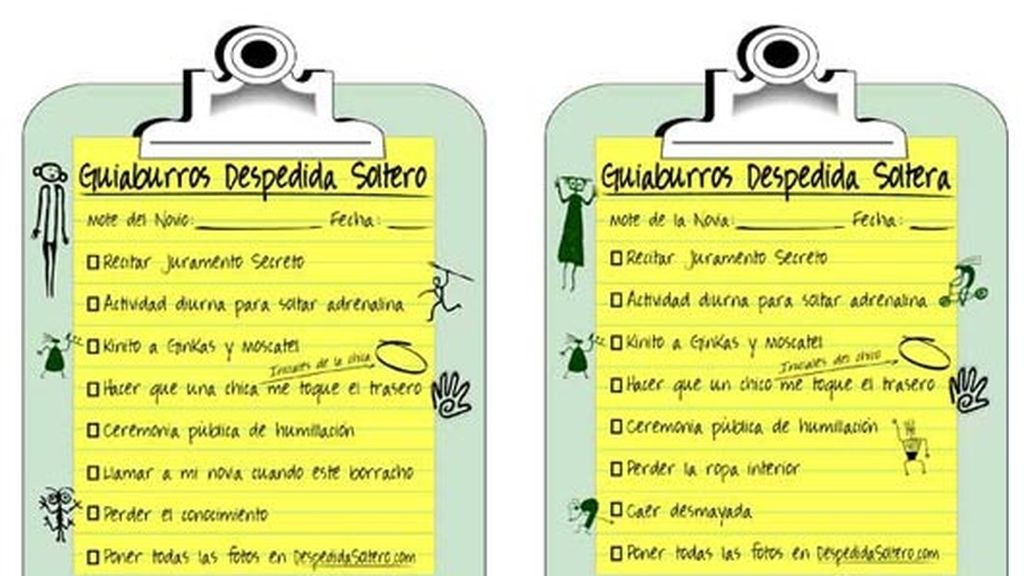 Guiaburros Despedida Soltero
Mote del Novio: Fecha:
Recitar Juramento Secreto
Actividad diurna para soltar adrenalina
Kinito a Ginkas y Moscatel
Iniciales de la chica
Hacer que una chica me toque el trasero
Ceremonia pública de humillación
Llamar a mi novia cuando este borracho
Perder el conocimiento
Poner todas las fotos en DespedidaSoltero.com
Guiaburros Despedida Soltera
Mote de la Novia: Fecha:
Recitar Juramento Secreto
Actividad diurna para soltar adrenalina
Kinito a Ginkas y Moscatel
Iniciales del chico
Hacer que un chico me toque el trasero
Ceremonia pública de humillación
Perder la ropa interior
Caer desmayada
Poner todas las fotos en DespedidaSoltero.com